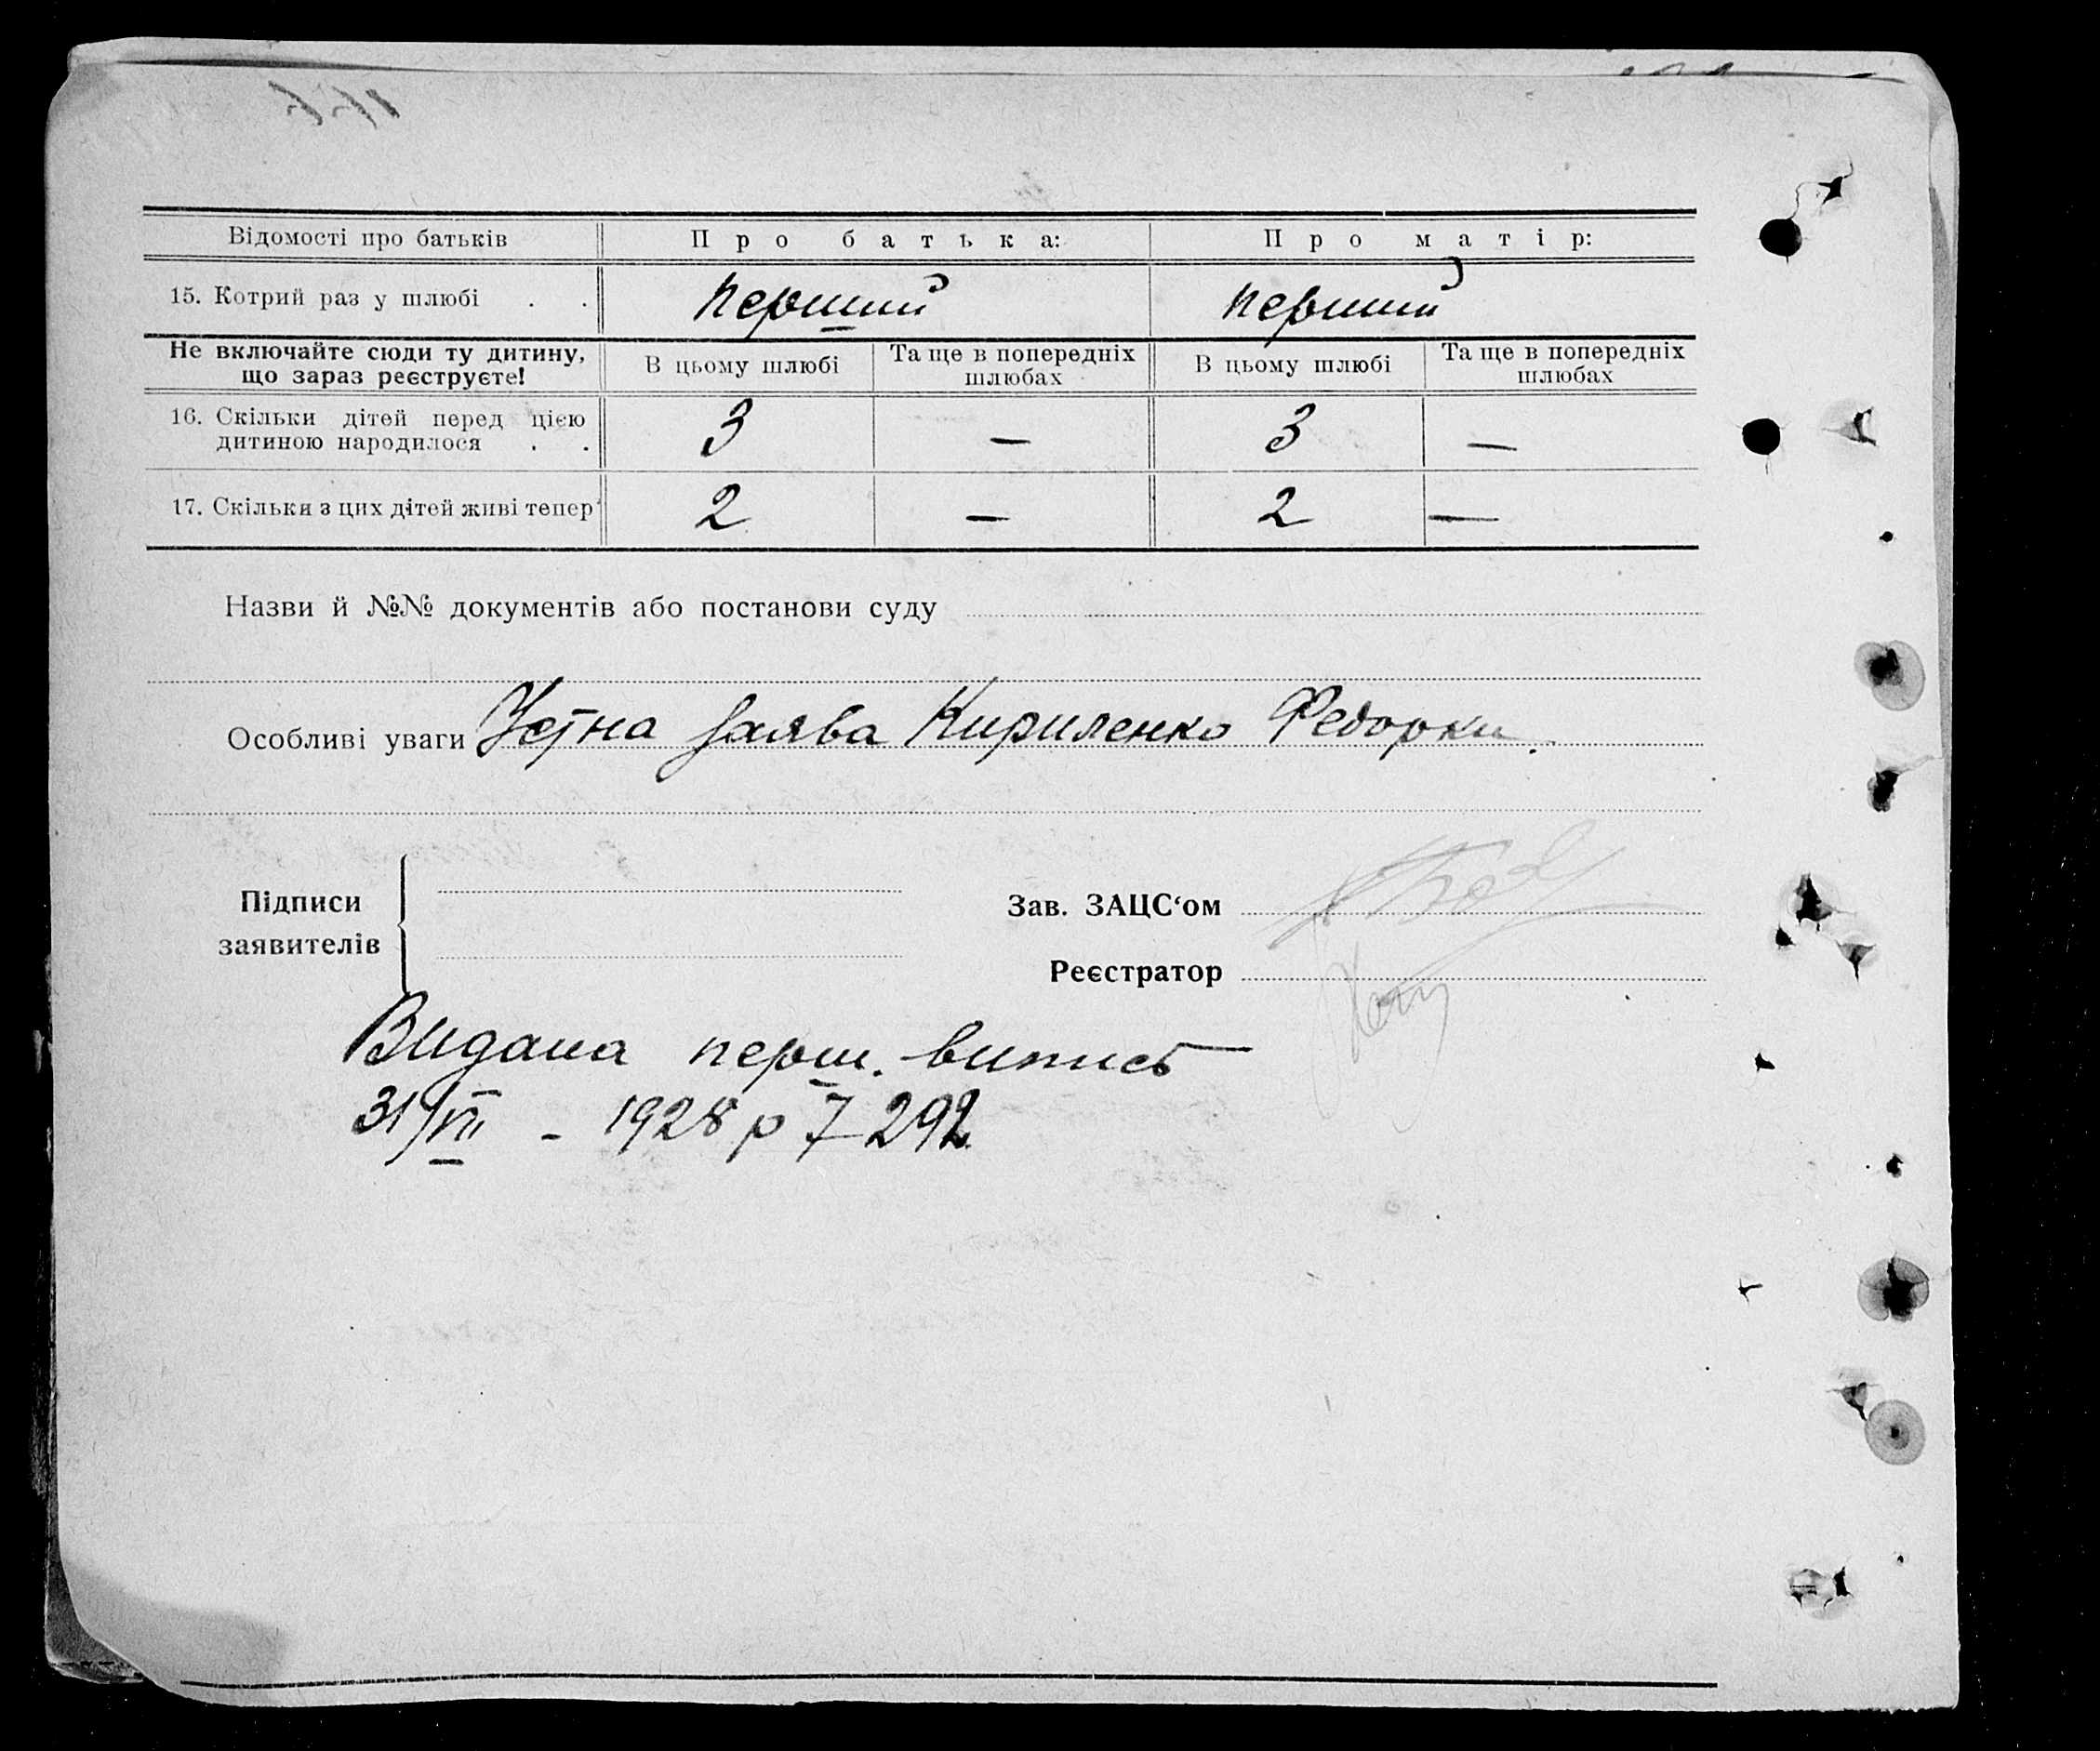 Відомості про батьків Про батька: Про матір:
15. Котрий раз у шлюбі . . перший перший
Не включайте сюди ту дитину, що зараз реєструєте! В цьому шлюбі Та ще в попередніх шлюбах В цьому шлюбі Та ще в попередніх шлюбах
16. Скільки дітей перед цією дитиною народилося . . 3 — 3 —
17. Скільки з цих дітей живі тепер 2 — 2 —
Назви й №№ документів або постанови суду
Особливі уваги Устна заява Кириленко Федорки.
Підписи заявителів
Зав. ЗАЦС‘ом
Реєстратор
Видана перш. випись
31/VII - 1928 р 7 292